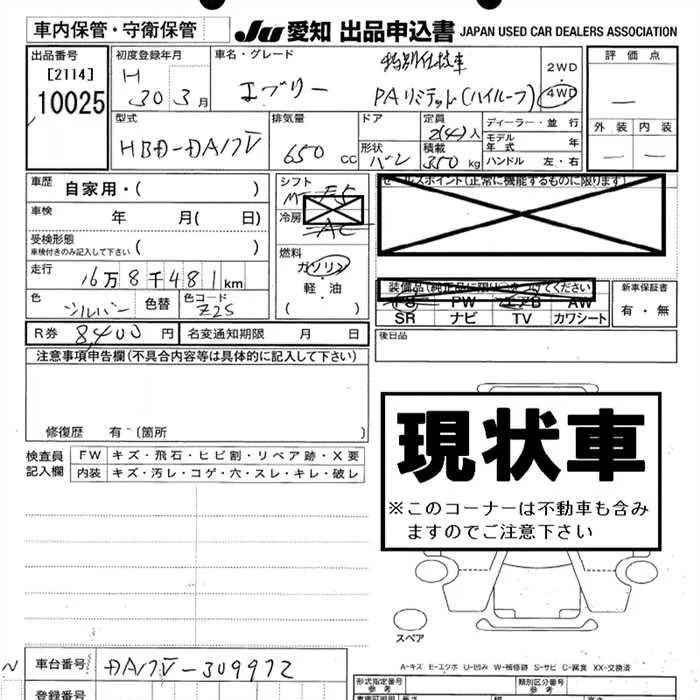 車内保管・守衛保管
JU 愛知 出品申込書 JAPAN USED CAR DEALERS ASSOCIATION
出品番号
[2114]
10025
初度登録年月
H
30 3月
車名・グレード
エブリー
特別仕様車
PAリミテッド(ハイルーフ)
2WD
・
4WD
評価点
—
外装 内装
— —
型式
HBD-DA17V
排気量
650 cc
ドア
形状
バン
定員
2(4)人
積載
350kg
ディーラー・並行
モデル年式 年
ハンドル 左・右
車歴 自家用・( )
車検 年 月( 日)
受検形態
車検付きのみ記入して下さい ( )
走行 16万8千481km
色 シルバー 色替 色コード Z2S
R券 8,400円 名変通知期限 月 日
シフト
F5
冷房
AC
燃料
ガソリン
・
軽・油
( )
セールスポイント(正常に機能するものに限ります)
装備品(純正品に限り○をつけてください)
PS PW エアB AW
SR ナビ TV カワシート
新車保証書
有・無
後日品
注意事項申告欄(不具合内容等は具体的に記入して下さい)
修復歴 有 (箇所 )
検査員記入欄
FW キズ・飛石・ヒビ割・リペア跡・X要
内装 キズ・汚レ・コゲ・穴・スレ・キレ・破レ
現状車
※このコーナーは不動車も含み
ますのでご注意下さい
スペア
A-キズ E-エクボ U-凹み W-補修跡 S-サビ C-腐食 XX-交換済
車台番号 DA17V-309972
登録番号
型式指定番号
参考
類別区分番号
参考